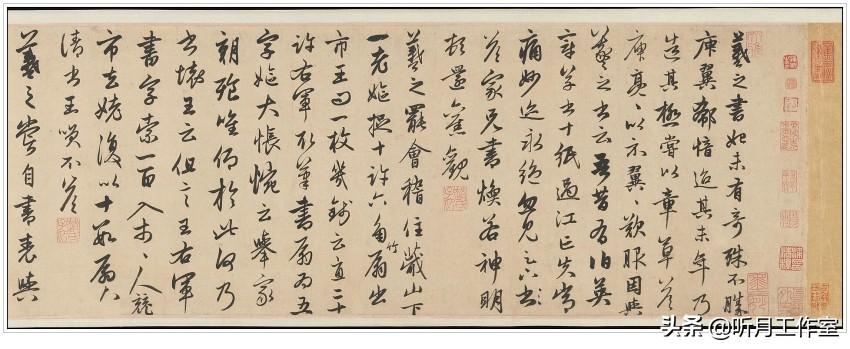 羲之書初未有奇殊不勝
庾翼郗愔迨其末年乃
造其極嘗以章草答
庾亮、以示翼、歎服因與
羲之書云吾昔有伯英
章草書十紙過江亡失常
痛妙迹永絕忽見
答家兄書煥若神明
頓還舊觀
羲之罷會稽住蕺山下
一老嫗捉十許六角竹扇出
市王問一枚幾錢云直二十
許右軍取筆書扇為五
字嫗大悵惋云舉家
朝飡唯仰於此何乃
書壞王云但言王右軍
書字索一百入市、人競
市去姥復以十數扇來
請書王笑不答
羲之嘗自書表與
头条 @听月工作室